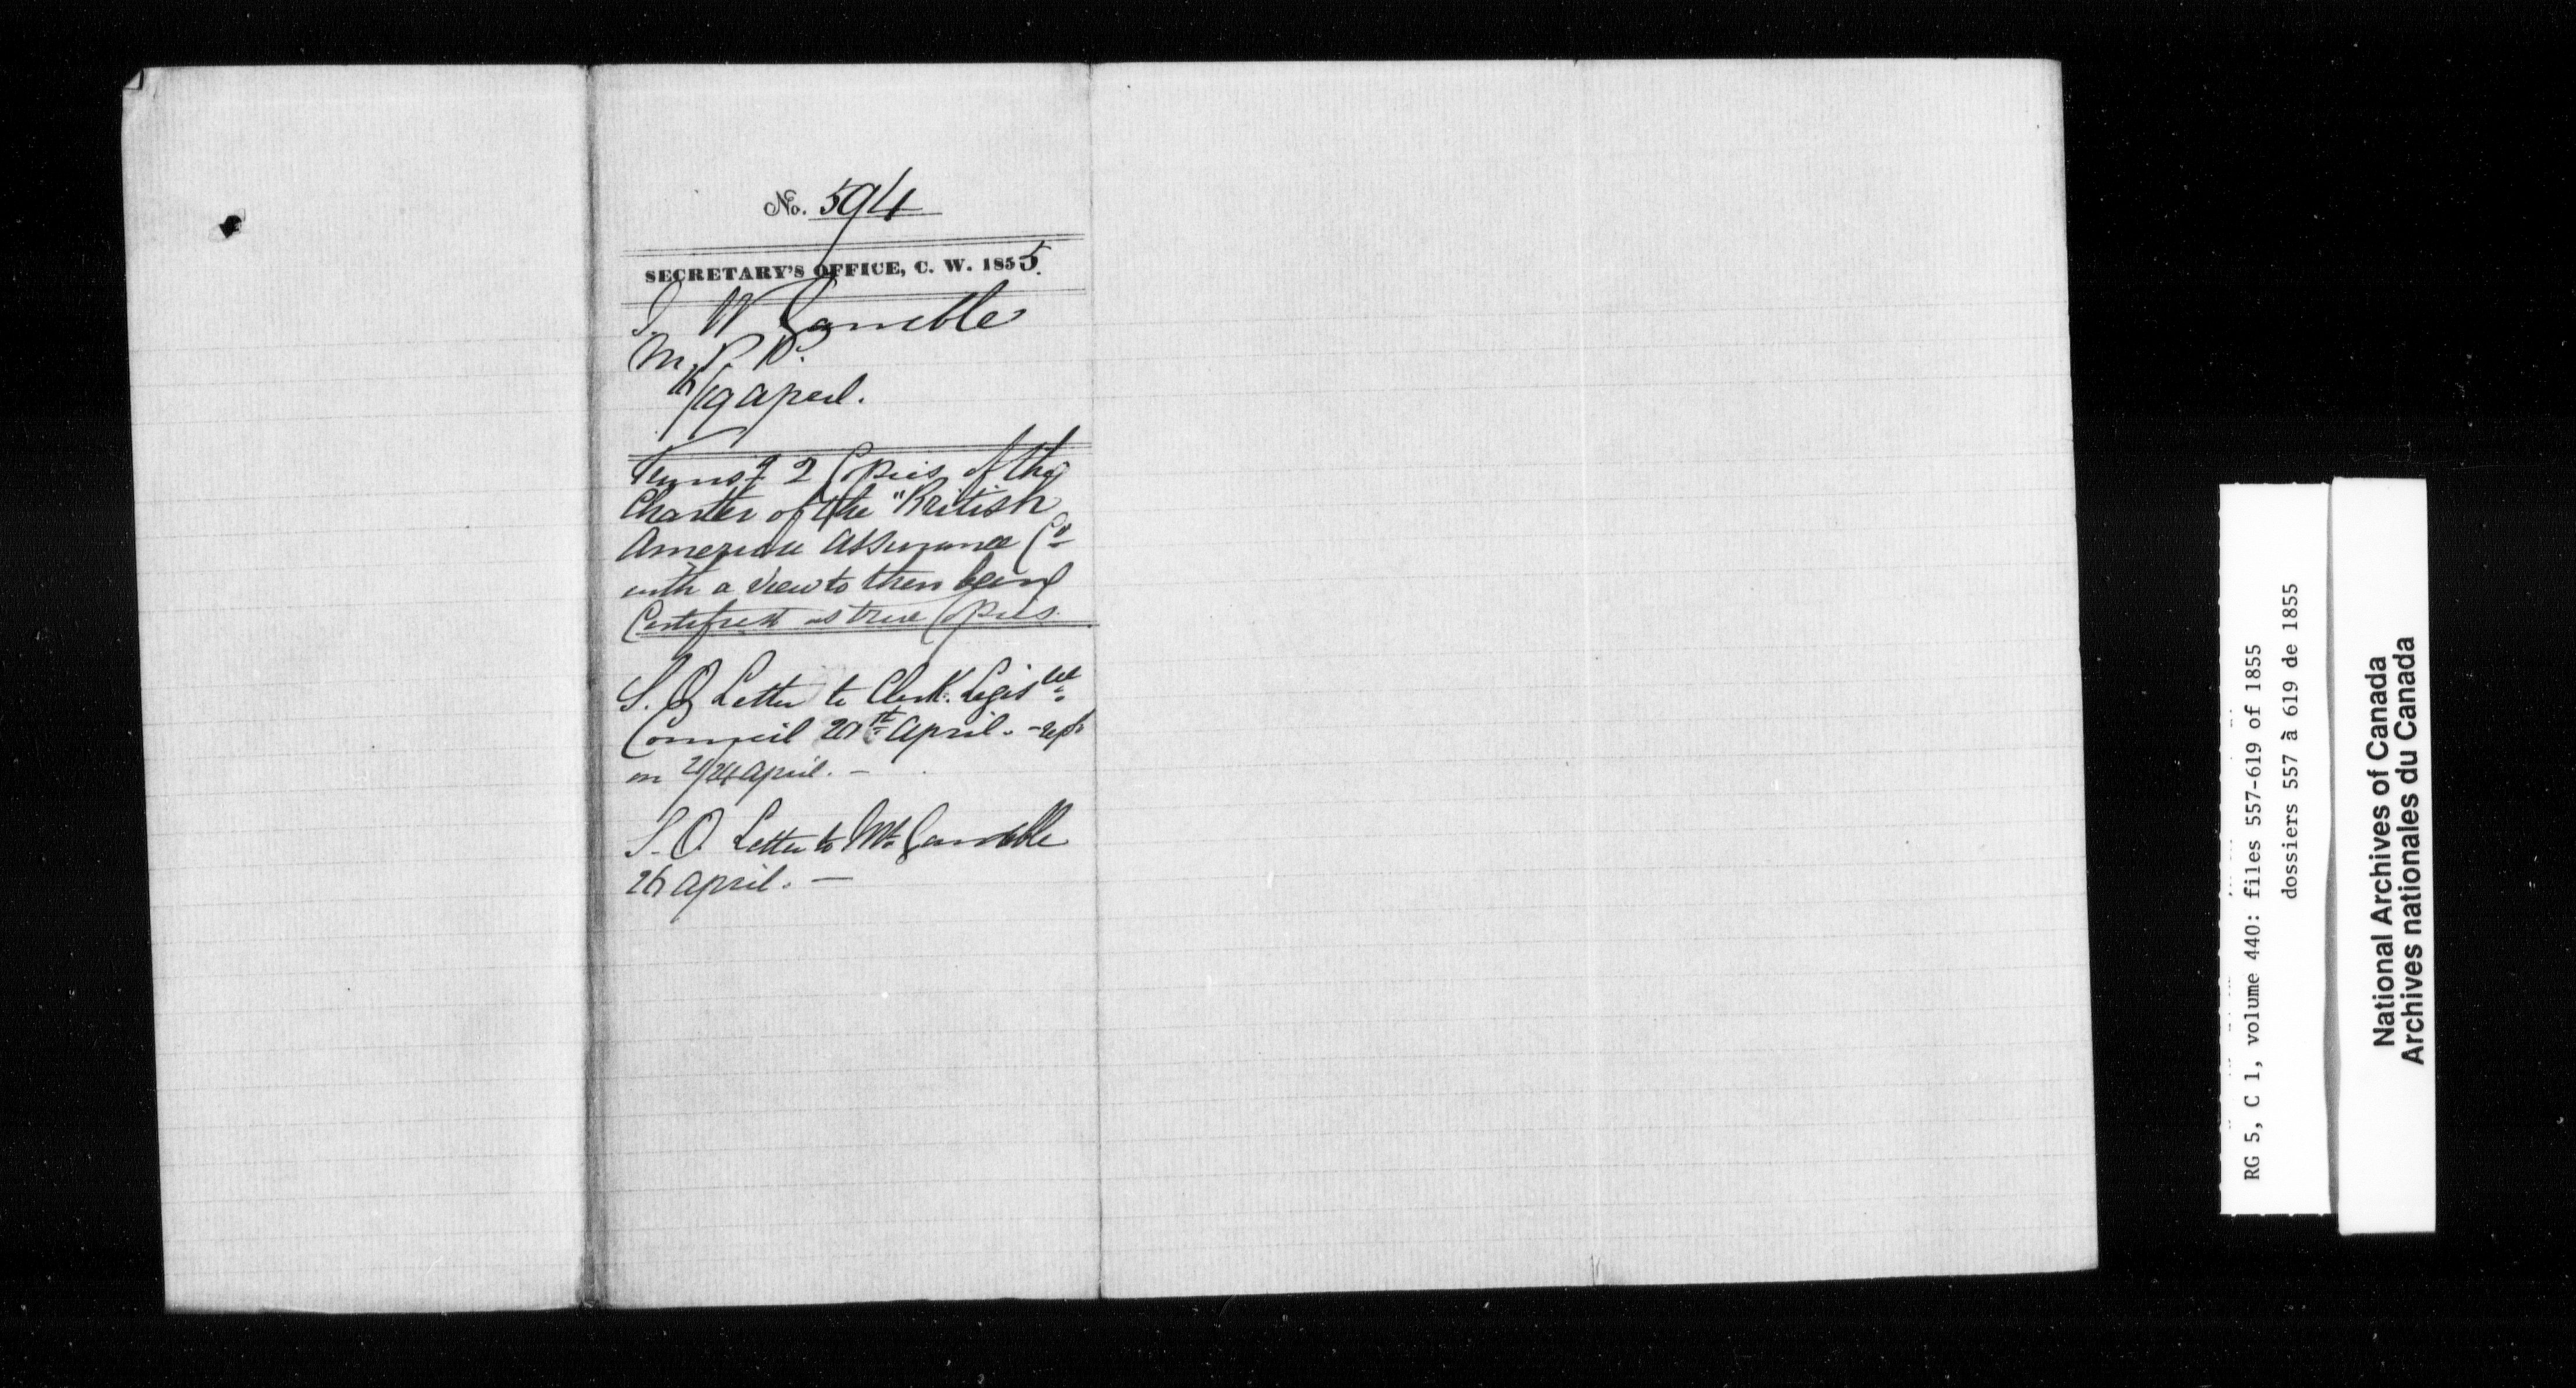 No. 594
SECRETARY'S OFFICE, C. W. 1855.
J. W Gamble
M. P. P.
16/19 April.
2 Copies of the
Charter of the "British
America Assurance Co
with a view to their being
Certified as true Copies.
S. O Letter to Clerk. Legis tve
Council 20th April. - reply
on 21/24 April. -
S. O. Letter to Mr Gamble
26 April. -
RG 5, C 1, volume 440: files 557-619 of 1855
dossiers 557 à 619 de 1855
National Archives of Canada
Archives nationales du Canada